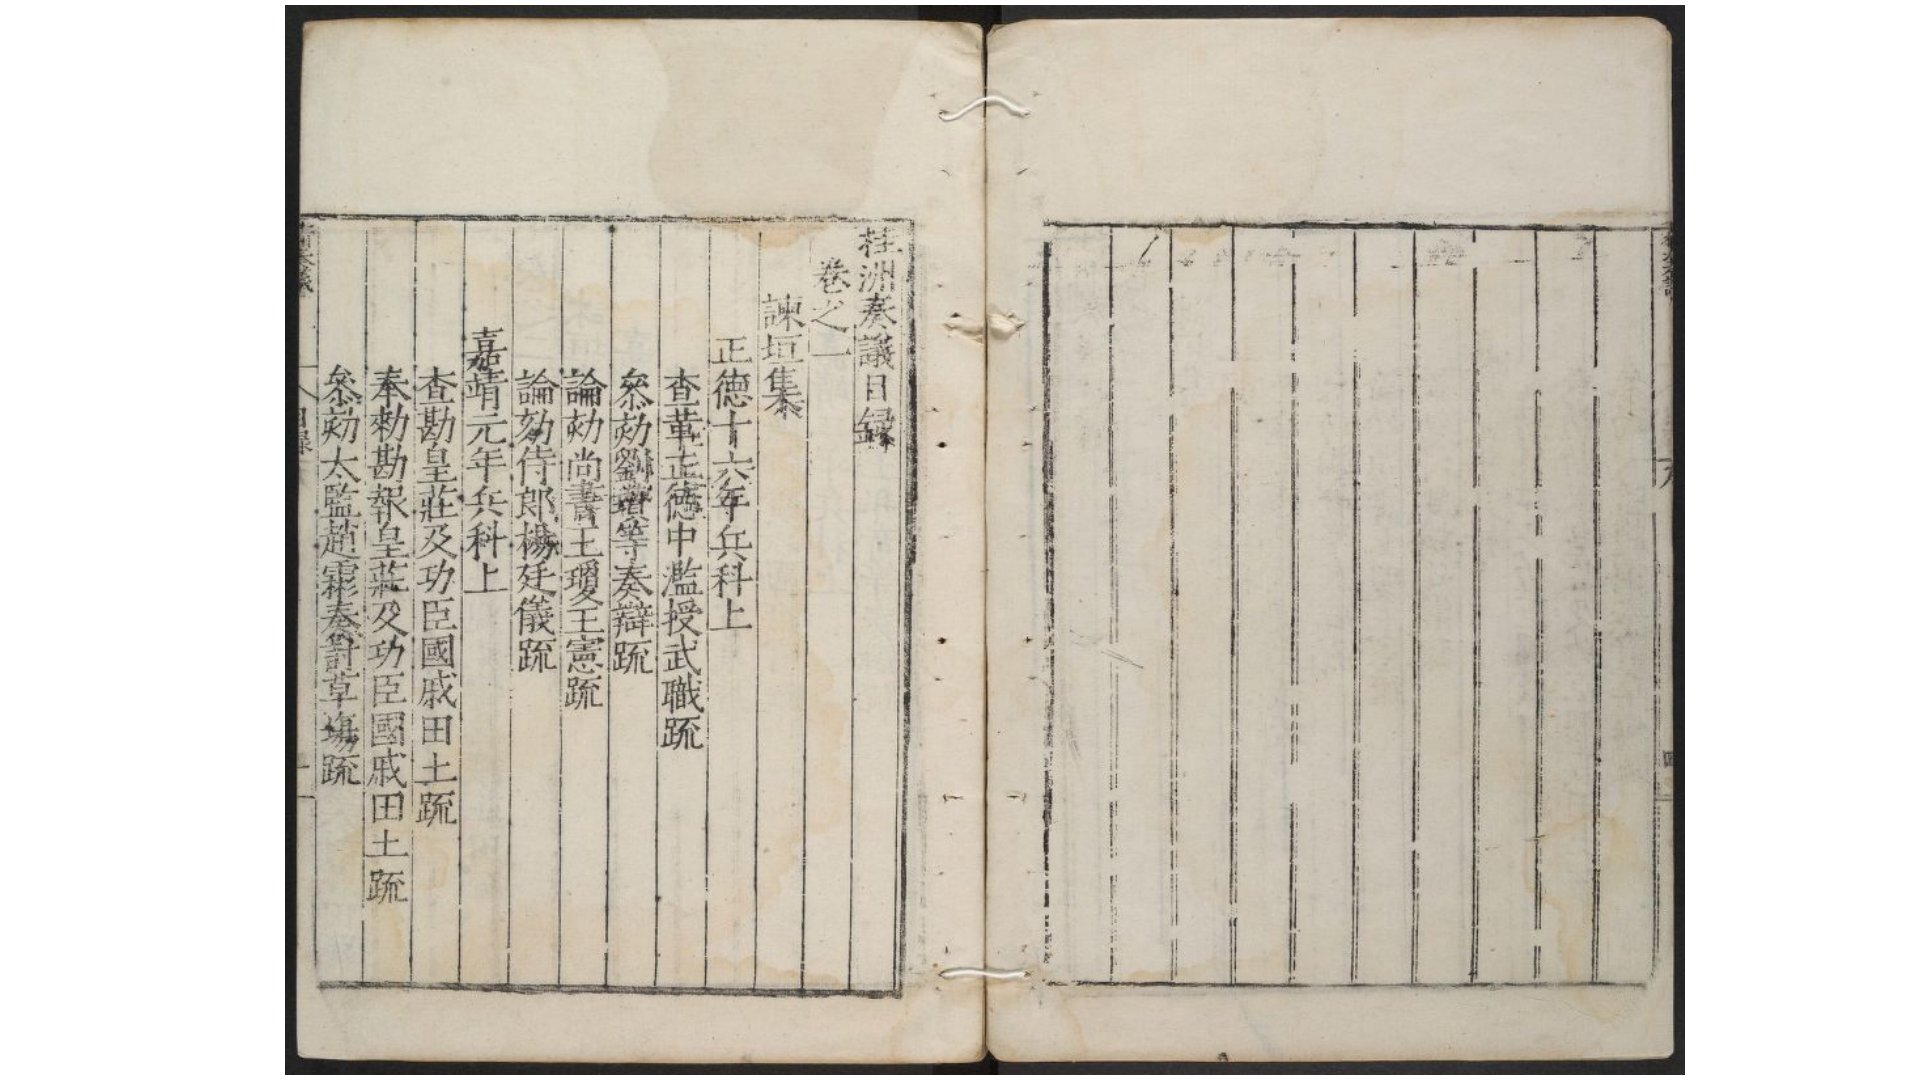 桂洲奏議目録
卷之一
諫垣集
正德十六年兵科上
查革正德中濫授武職疏
叅劾劉瓚等奏辯疏
論劾尚書王瓊王憲疏
論劾侍郎楊廷儀疏
嘉靖元年兵科上
查勘皇莊及功臣國戚田土疏
奉勑勘報皇莊及功臣國戚田土疏
叅劾太監趙霦奏討草塲疏